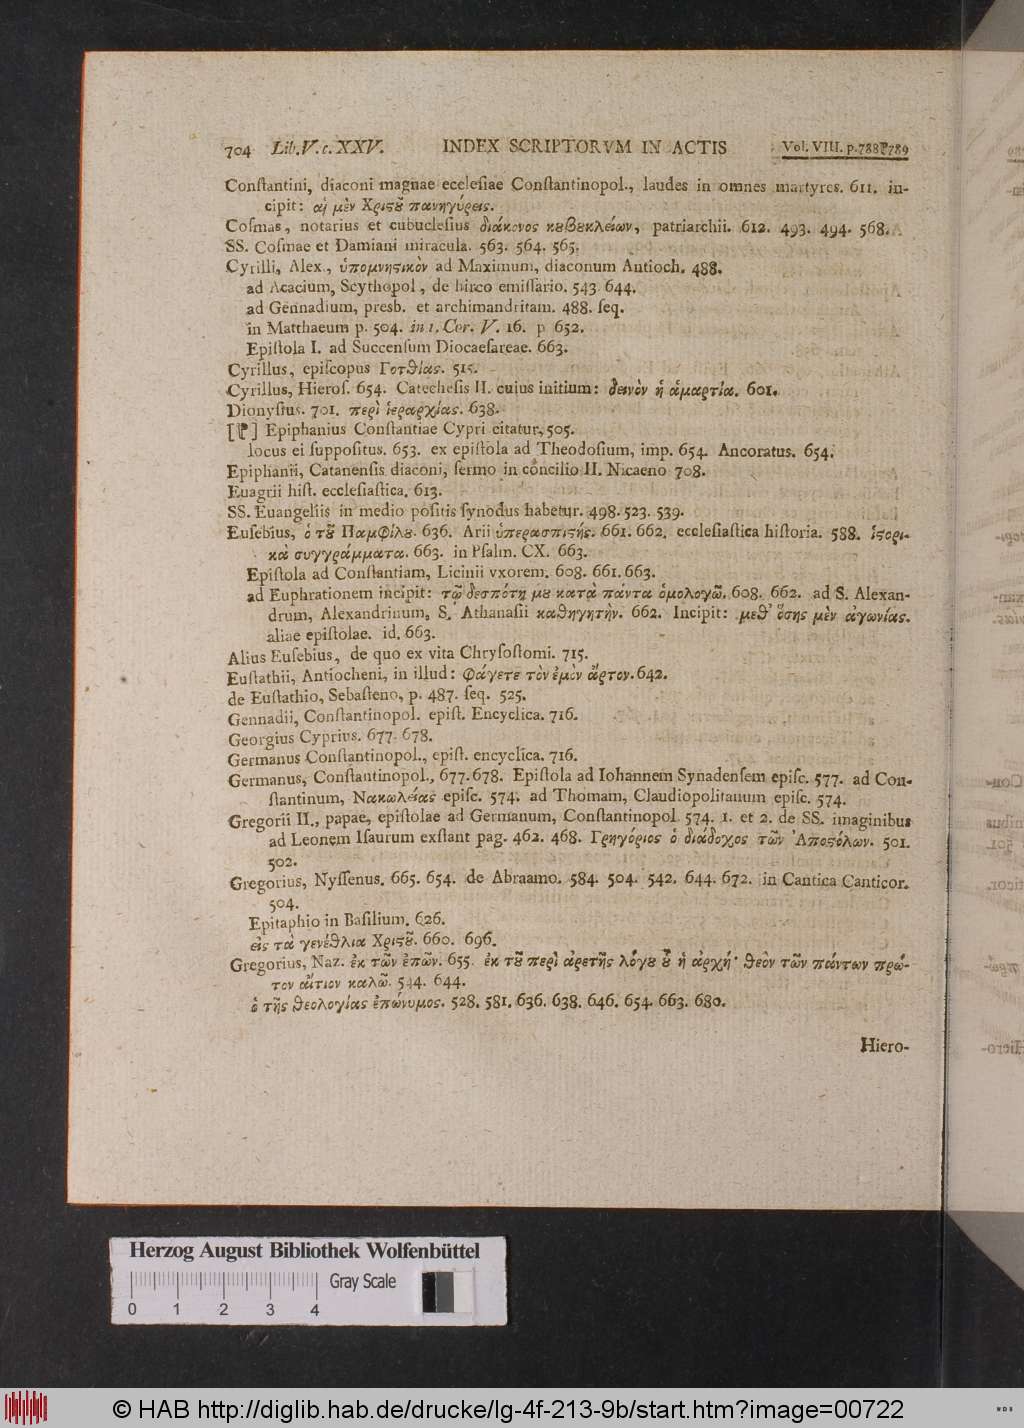 704 Lib. V. c. XXV. INDEX SCRIPTORVM IN ACTIS Vol. VIII. p. 788 789
Conſtantini, diaconi magnae eccleſiae Conſtantinopol., laudes in omnes martyres. 611. in-
cipit: αἱ μὲν Χριϛοῦ πανηγύρεις.
Coſmas, notarius et cubucleſius διάκονος κουβουκλείων, patriarchii. 612. 493. 494. 568.
SS. Coſmae et Damiani miracula. 563. 564. 565.
Cyrilli, Alex., ὑπομνηϛικὸν ad Maximum, diaconum Antioch. 488.
ad Acacium, Scythopol, de hirco emiſſario. 543. 644.
ad Gennadium, presb. et archimandritam. 488. ſeq.
in Matthaeum p. 504. in 1. Cor. V. 16. p 652.
Epiſtola I. ad Succenſum Diocaeſareae. 663.
Cyrillus, epiſcopus Γοτθίας. 515.
Cyrillus, Hieroſ. 654. Catecheſis II. cuius initium: δεινὸν ἡ ἁμαρτία. 601.
Dionyſius. 701. περὶ ἱεραρχίας. 638.
[ ] Epiphanius Conſtantiae Cypri citatur, 505.
locus ei ſuppoſitus. 653. ex epiſtola ad Theodoſium, imp. 654. Ancoratus. 654.
Epiphanii, Catanenſis diaconi, ſermo in concilio II. Nicaeno 708.
Euagrii hiſt. eccleſiaſtica. 613.
SS. Euangeliis in medio poſitis ſynodus habetur. 498. 523. 539.
Euſebius, ὁ τοῦ Παμφίλου. 636. Arii ὑπερασπιϛής. 661. 662. eccleſiaſtica hiſtoria. 588. ἱϛορι-
κὰ συγγράμματα. 663. in Pſalm. CX. 663.
Epiſtola ad Conſtantiam, Licinii vxorem. 608. 661. 663.
ad Euphrationem incipit: τῷ δεσπότῃ μου κατὰ πάντα ὁμολογῶ. 608. 662. ad S. Alexan-
drum, Alexandrinum, S. Athanaſii καθηγητὴν. 662. Incipit: μεθ᾽ ὅσης μὲν ἀγωνίας.
aliae epiſtolae. id. 663.
Alius Euſebius, de quo ex vita Chryſoſtomi. 715.
Euſtathii, Antiocheni, in illud: φάγετε τὸν ἐμὸν ἄρτον. 642.
de Euſtathio, Sebaſteno, p. 487. ſeq. 525.
Gennadii, Conſtantinopol. epiſt. Encyclica. 716.
Georgius Cyprius. 677. 678.
Germanus Conſtantinopol., epiſt. encyclica. 716.
Germanus, Conſtantinopol., 677. 678. Epiſtola ad Iohannem Synadenſem epiſc. 577. ad Con-
ſtantinum, Νακωλείας epiſc. 574. ad Thomam, Claudiopolitanum epiſc. 574.
Gregorii II., papae, epiſtolae ad Germanum, Conſtantinopol. 574. 1. et 2. de SS. imaginibus
ad Leonem Iſaurum exſtant pag. 462. 468. Γρηγόριος ὁ διάδοχος τῶν Ἀποϛόλων. 501.
502.
Gregorius, Nyſſenus. 665. 654. de Abraamo. 584. 504. 542. 644. 672. in Cantica Canticor.
504.
Epitaphio in Baſilium. 626.
εἰς τὰ γενέθλια Χριϛοῦ. 660. 696.
Gregorius, Naz. ἐκ τῶν ἐπῶν. 655. ἐκ τοῦ περὶ ἀρετῆς λόγου οὗ ἡ ἀρχή· θεὸν τῶν πάντων πρώ-
τον αἴτιον καλῶ. 544. 644.
ὁ τῆς θεολογίας ἐπώνυμος. 528. 581. 636. 638. 646. 654. 663. 680.
Hiero-
Herzog August Bibliothek Wolfenbüttel
Gray Scale
0 1 2 3 4
© HAB http://diglib.hab.de/drucke/lg-4f-213-9b/start.htm?image=00722